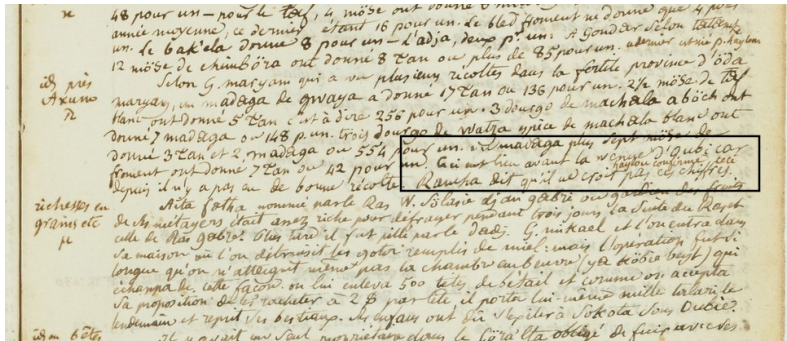 48 pour un — pour le ṭaf, 4 möse ont donné
année moyenne, ce dernier étant 16 pour un. Le bled froment ne donne que 4 pour
un. Le bakela donne 8 pour un — L'adja, deux pr. un. A Gondar selon
12 möse de chimböra ont donné 8 ṭan ou plus de 85 pour un.
Selon G. maryam qui a vu plusieurs récoltes dans la fertile province d'öda
id. près maryam, un madaga de gwaya a donné 17 ṭan ou 136 pour un. 2½ möse de ṭaf
Axum blanc ont donné 5 ṭan c'est à dire 256 pour un. 3 dourgo de machala aböch ont
donné 7 madaga ou 148 p. un. trois dourgo de watza espèce de machala blanc ont
donné 3 ṭan et 2 madaga ou 554 pour un. madaga plus sept möse de
froment ont donné 7 ṭan ou 42 pour un. Ceci eut lieu avant la venue d'Oubi car
haylou confirme ceci
depuis il n'y a pas eu de bonne récolte Rancha dit qu'il ne croit pas ces chiffres.
richesses en Aïta fatha nommé par le Ras W. Sılasie dj au gabri ou gardien des fruits
grains etc de ses métayers était assez riche pour défrayer pendant trois jours la suite du
celle de Ras gabri. Plus tard il fut pillé par le Dadj. G. mikael et l'on entra dans
sa maison où l'on détruisit les gotor remplis de miel: mais l'opération fut si
longue qu'on n'atteignit même pas la chambre au beurre (ya köbie beyt) qui
échappa de cette façon. on lui enleva 500 têtes de bétail et comme on accepta
sa proposition de les racheter à 2$ par tête, il porta lui-même mille talari le
lendemain et reprit ses bestiaux. Ses enfans ont dû s'exiler à Sokota sous Oubie.
id. en bêtes Il y avait un seul propriétaire dans le obligé de fuir avec ses